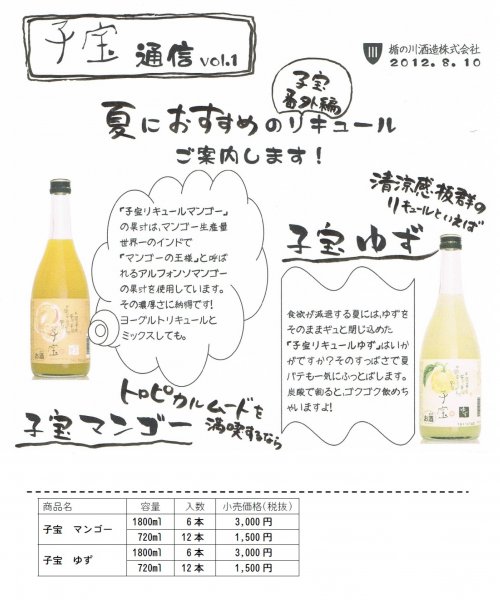 子宝 通信 vol.1
楯の川酒造株式会社
2012.8.10
子宝
番外編
夏におすすめのリキュール
ご案内します!
清涼感抜群の
リキュールといえば
子宝 ゆず
『子宝リキュールマンゴー』
の果汁は、マンゴー生産量
世界一のインドで
『マンゴーの王様』と呼ば
れるアルフォンソマンゴー
の果汁を使用しています。
その濃厚さに納得です!
ヨーグルトリキュールと
ミックスしても。
食欲が減退する夏には、ゆずを
そのままギュと閉じ込めた
『子宝リキュールゆず』はいか
がですか?そのすっぱさで夏
バテも一気にふっとばします。
炭酸で割ると、ゴクゴク飲めち
ゃいますよ!
子宝
お酒
子宝
お酒
トロピカルムードを
満喫するなら
子宝 マンゴー
商品名 容量 入数 小売価格(税抜)
子宝 マンゴー 1800ml 6本 3,000円
720ml 12本 1,500円
子宝 ゆず 1800ml 6本 3,000円
720ml 12本 1,500円